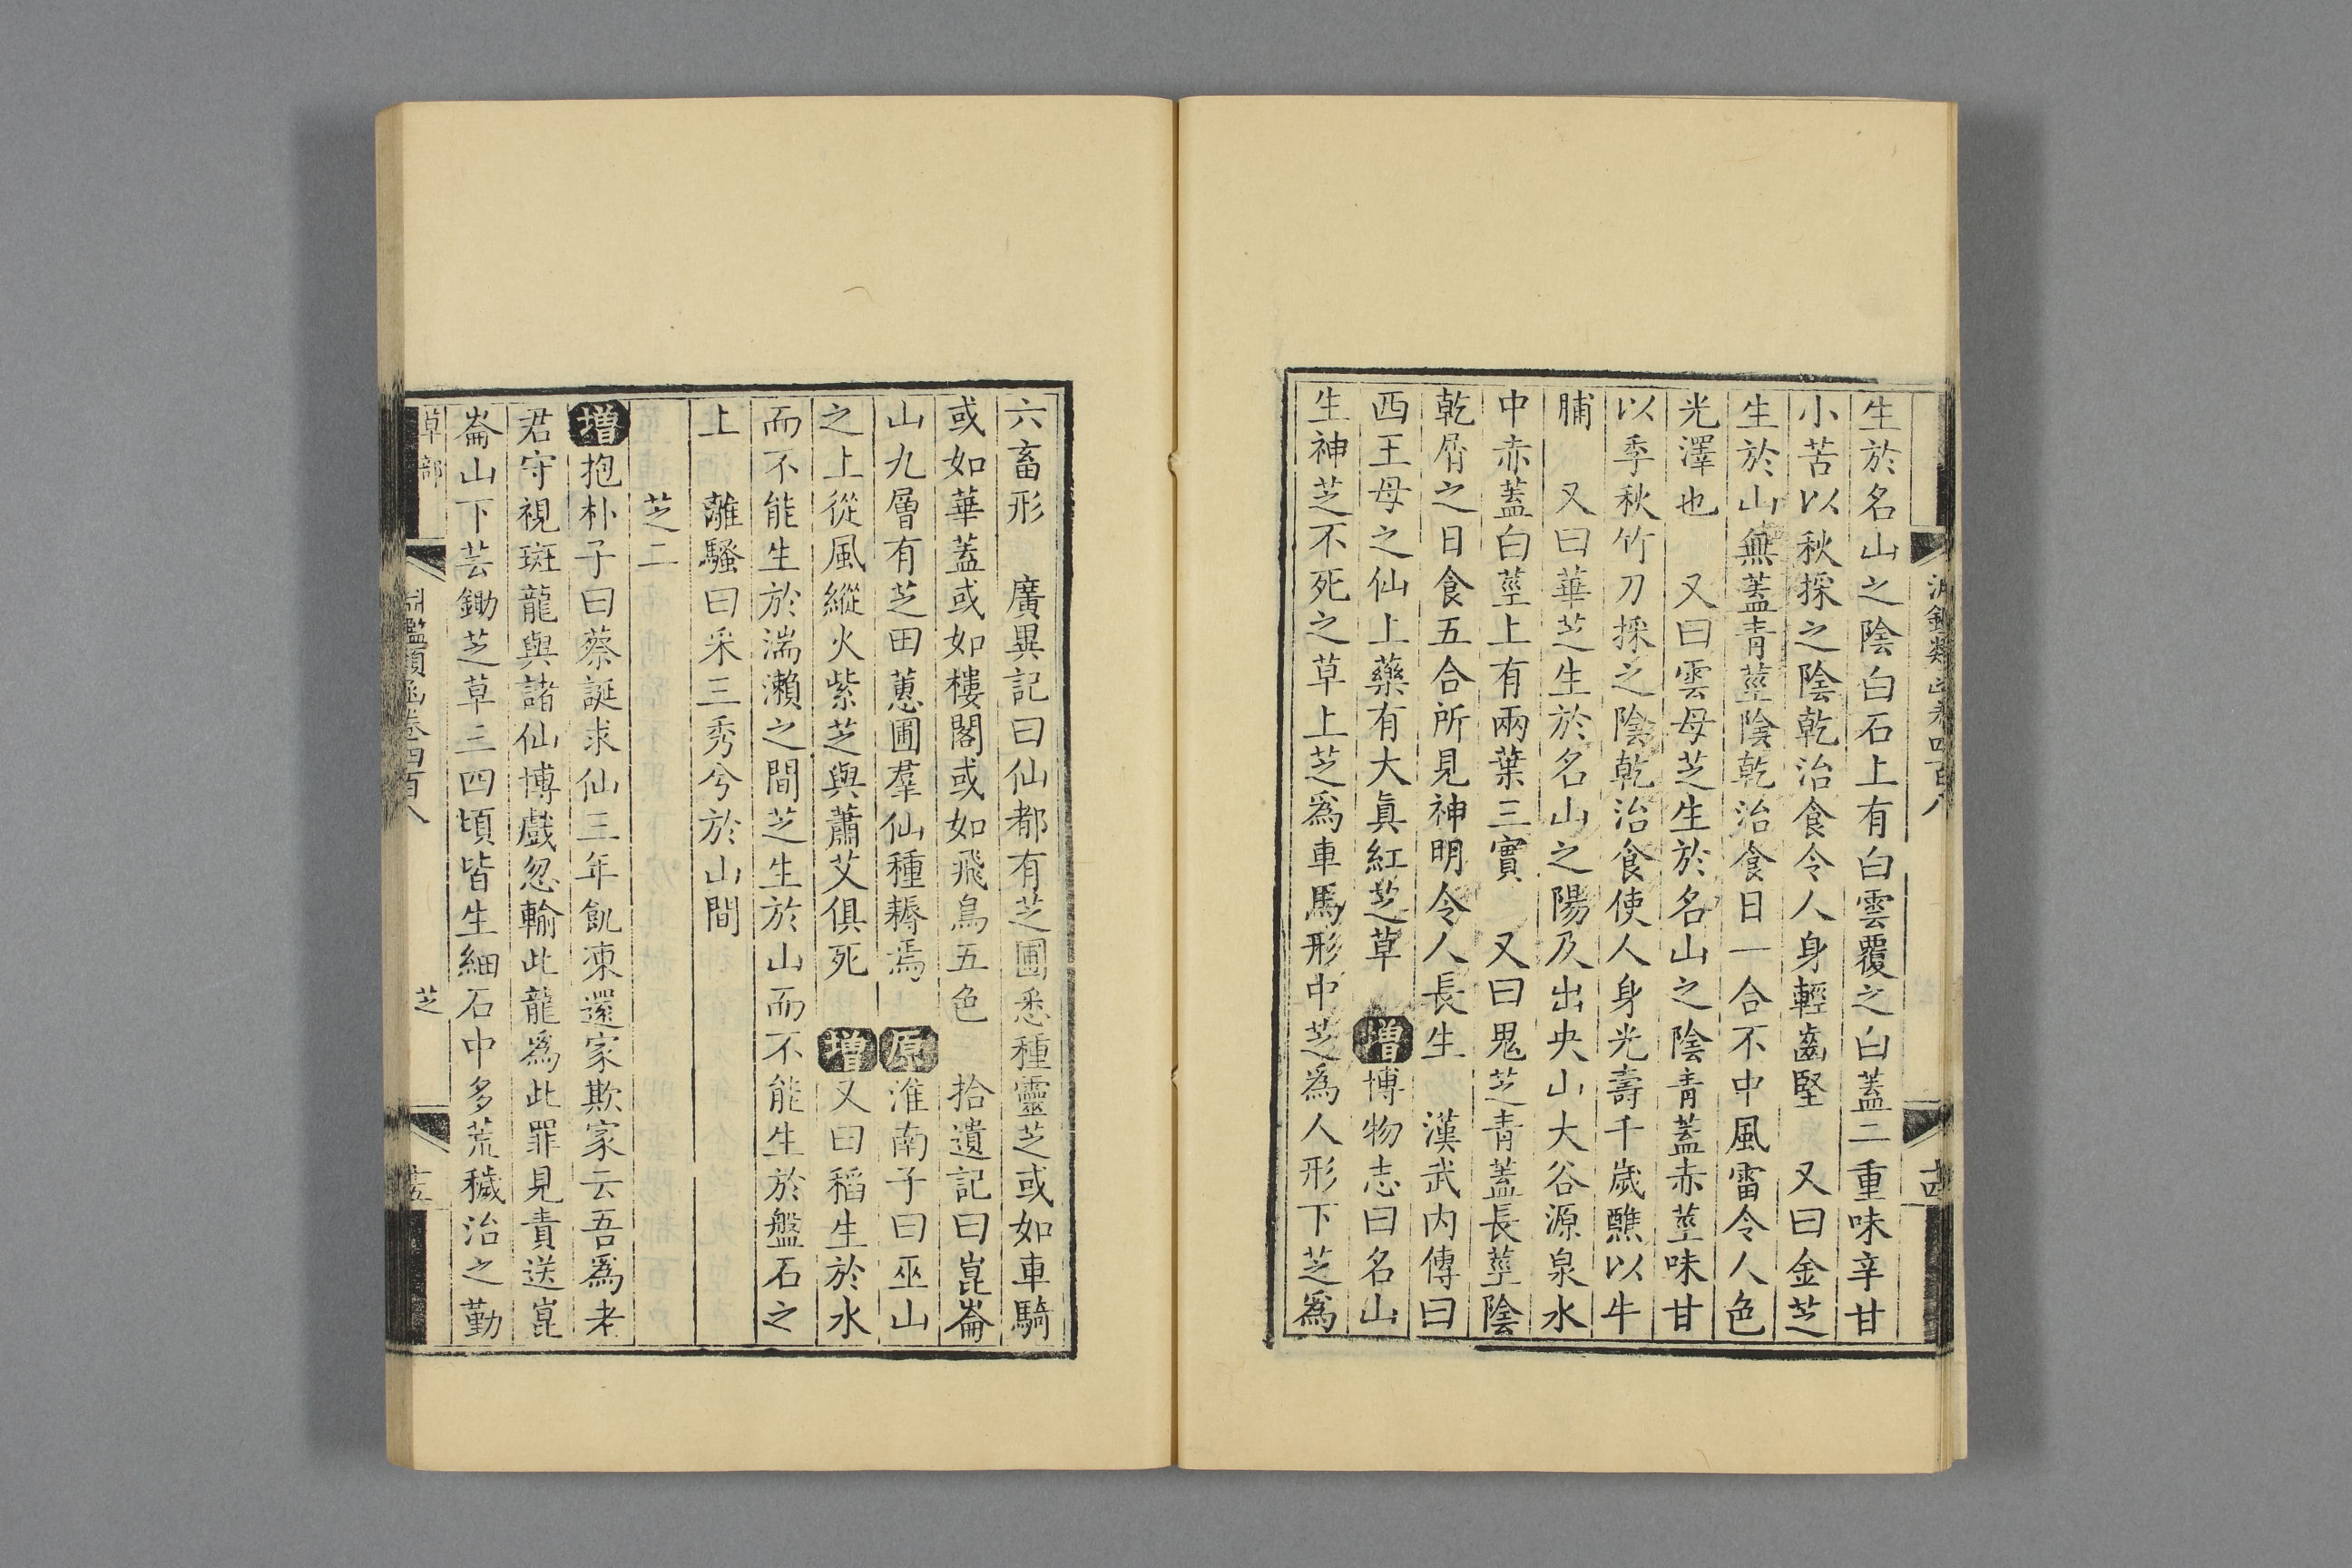 生於名山之陰白石上有白雲覆之白蓋二重味辛甘
小苦以秋採之陰乾治食令人身輕齒堅　又曰金芝
生於山無蓋青莖陰乾治食日一合不中風雷令人色
光澤也　又曰雲母芝生於名山之陰青蓋赤莖味甘
以季秋竹刀採之陰乾治食使人身光壽千歲醮以牛
脯　又曰華芝生於名山之陽及出央山大谷源泉水
中赤蓋白莖上有兩葉三實　又曰鬼芝青蓋長莖陰
乾屑之日食五合所見神明令人長生　漢武內傳曰
西王母之仙上藥有大眞紅芝草　增博物志曰名山
生神芝不死之草上芝爲車馬形中芝爲人形下芝爲
六畜形　廣異記曰仙都有芝圃悉種靈芝或如車騎
或如華蓋或如樓閣或如飛鳥五色　拾遺記曰崑崙
山九層有芝田蕙圃羣仙種耨焉　原淮南子曰巫山
之上從風縱火紫芝與蕭艾俱死　增又曰稻生於水
而不能生於湍瀨之間芝生於山而不能生於盤石之
上　離騷曰采三秀兮於山間
芝二
增抱朴子曰蔡誕求仙三年飢凍還家欺家云吾爲老
君守視斑龍與諸仙博戲忽輸此龍爲此罪見責送崑
崙山下芸鋤芝草三四頃皆生細石中多荒穢治之勤
草部
淵鑑類函卷四百八
芝